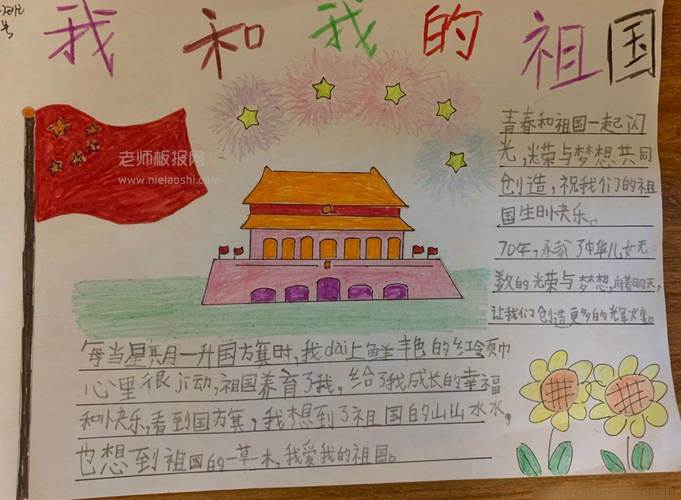 我和我的祖国
老师板报网
www.nielaoshi.com
青春和祖国一起闪
光,光荣与梦想共同
创造,祝我们的祖
国生日快乐。
70年,承载了中华儿女无
数的光荣与梦想,向着明天,
让我们创造更多的辉煌。
每当星期一升国旗时,我dai上鲜艳色的红领巾
心里很ji动,祖国养育了我,给了我成长的幸福
和快乐,看到国旗,我想到了祖国的山山水水,
也想到祖国的一草木,我爱我的祖国。